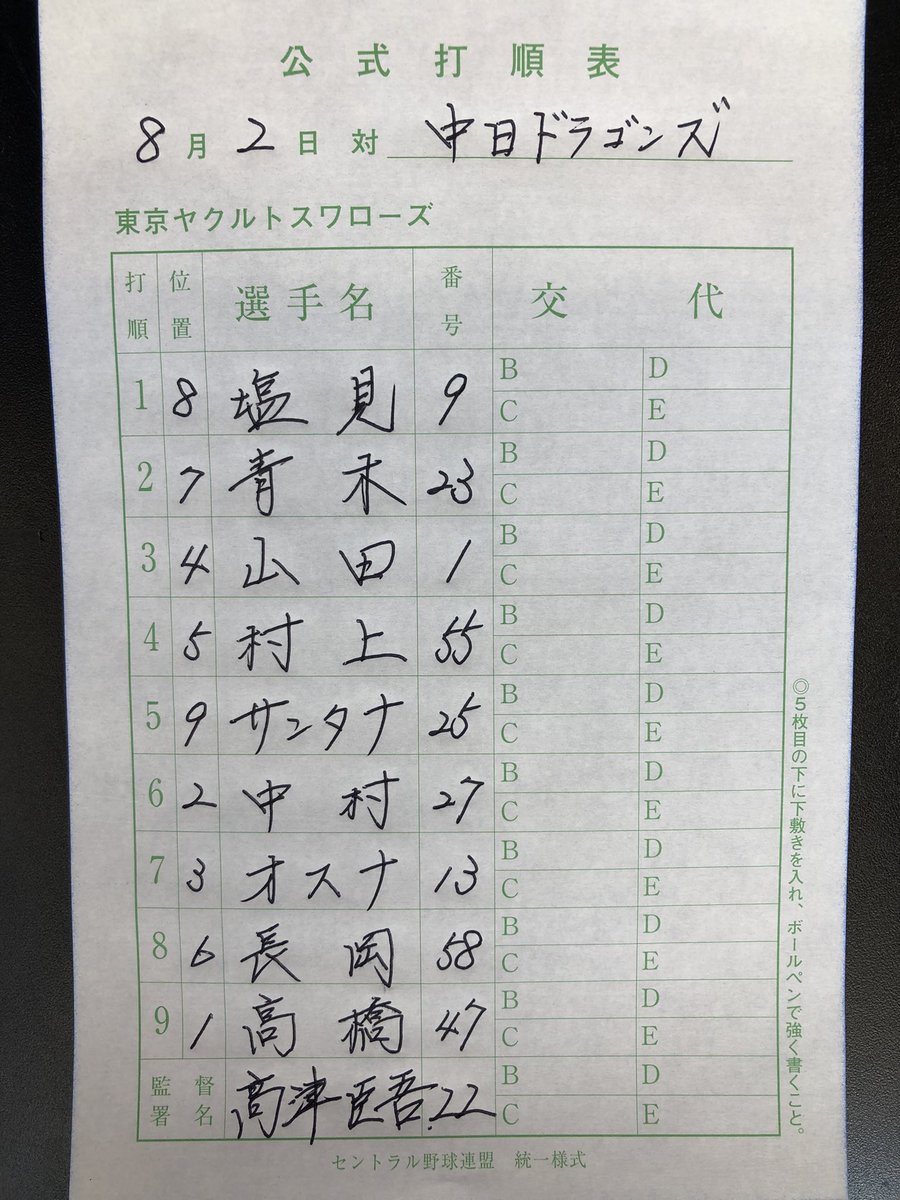 公式打順表
8月2日対 中日ドラゴンズ
東京ヤクルトスワローズ
打順 位置 選手名 番号 交代
1 8 塩見 9 B D
C E
2 7 青木 23 B D
C E
3 4 山田 1 B D
C E
4 5 村上 55 B D
C E
5 9 サンタナ 25 B D
C E
6 2 中村 27 B D
C E
7 3 オスナ 13 B D
C E
8 6 長岡 58 B D
C E
9 1 高橋 47 B D
C E
監督署名 高津臣吾.22 B D
C E
◎5枚目の下に下敷きを入れ、ボールペンで強く書くこと。
セントラル野球連盟 統一様式